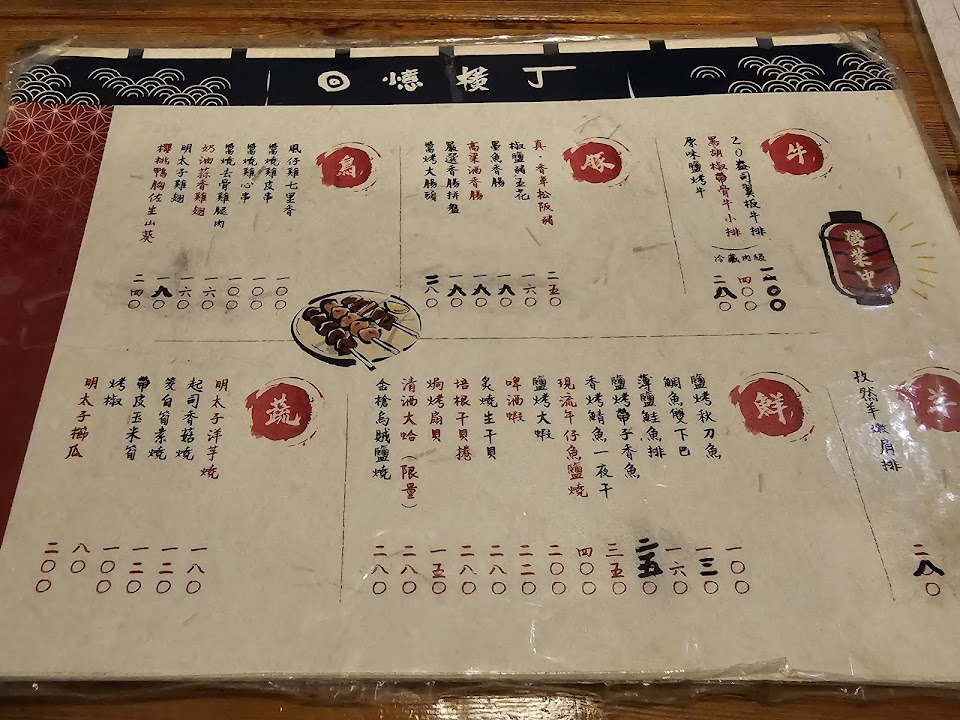 回憶橫丁
牛
20盎司翼板牛排
黑胡椒帶骨牛小排
(冷藏肉級)
原味鹽烤牛
四〇〇
二八〇
營業中
豚
真·香車松阪豬
椒鹽豬五花
墨魚香腸
高粱酒香腸
嚴選香腸拼盤
醬烤大腸頭
二五〇
一六〇
一八〇
一八〇
一八〇
二八〇
鳥
鳳仔雞七里香
醬燒雞皮串
醬燒雞心串
醬燒去骨雞腿肉
奶油蒜香雞翅
明太子雞翅
櫻桃鴨胸佐生山葵
一〇〇
一〇〇
一〇〇
一六〇
一六〇
一八〇
二四〇
羊
孜然羊嫩肩排
二八〇
鮮
鹽烤秋刀魚
鯛魚雙下巴
薄鹽鮭魚排
鹽烤帶子香魚
香烤鯖魚一夜干
現流午仔魚鹽燒
鹽烤大蝦
啤酒蝦
炙燒生干貝
培根干貝捲
焗烤扇貝
清酒大蛤(限量)
金槍烏賊鹽燒
一〇〇
一三〇
一六〇
二五〇
三五〇
四〇〇
二〇〇
二二〇
二八〇
二八〇
一五〇
二八〇
二八〇
蔬
明太子洋芋燒
起司香菇燒
筊白筍素燒
帶皮玉米筍
烤椒
明太子櫛瓜
一八〇
一二〇
一二〇
一〇〇
八〇
二〇〇